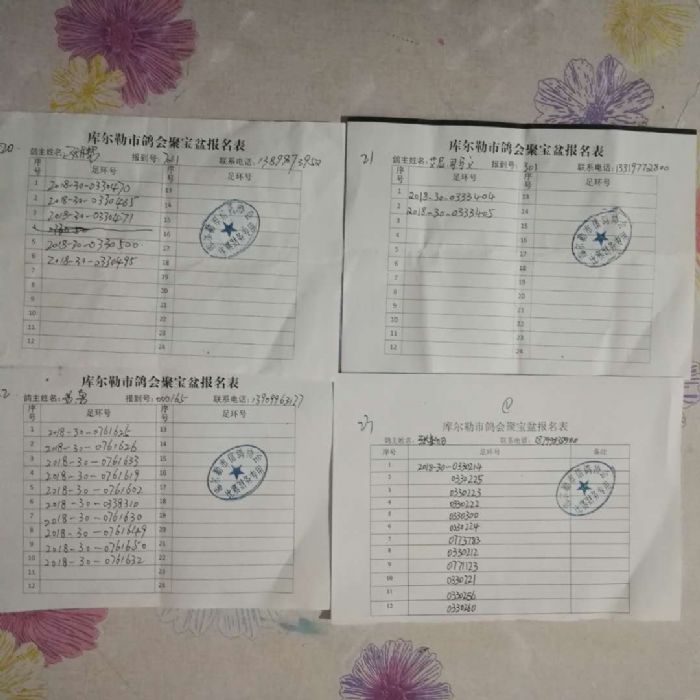 20
库尔勒市鸽会聚宝盆报名表
鸽主姓名: 报到号: 301 联系电话:
序号 足环号 序号 足环号
1 2018-30-0330470 13
2 2018-30-0330465 14
3 2018-30-0330471 15
4 16
5 2018-30-0330500 17
6 2018-30-0330495 18
7 19
8 20
9 21
10 22
11 23
12 24
21
库尔勒市鸽会聚宝盆报名表
鸽主姓名: 报到号: 301 联系电话: 13319772800
序号 足环号 序号 足环号
1 2018-30-0333404 13
2 2018-30-0333405 14
3 15
4 16
5 17
6 18
7 19
8 20
9 21
10 22
11 23
12 24
库尔勒市鸽会聚宝盆报名表
鸽主姓名: 报到号: 000165 联系电话: 13909963127
序号 足环号 序号 足环号
1 2018-30-0761625 13
2 2018-30-0761626 14
3 2018-30-0761633 15
4 2018-30-0761619 16
5 2018-30-0761602 17
6 2018-30-0338310 18
7 2018-30-0761630 19
8 2018-30-0761649 20
9 2018-30-0761650 21
10 2018-30-0761632 22
11 23
12 24
库尔勒市鸽会聚宝盆报名表
鸽主姓名: 联系电话:
序号 足环号 备注
1 2018-30-0330214
2 0330225
3 0330223
4 0330222
5 0330300
6 0330224
7 0773783
8 0330212
9 0771123
10 0330221
11 0330256
12 0330260